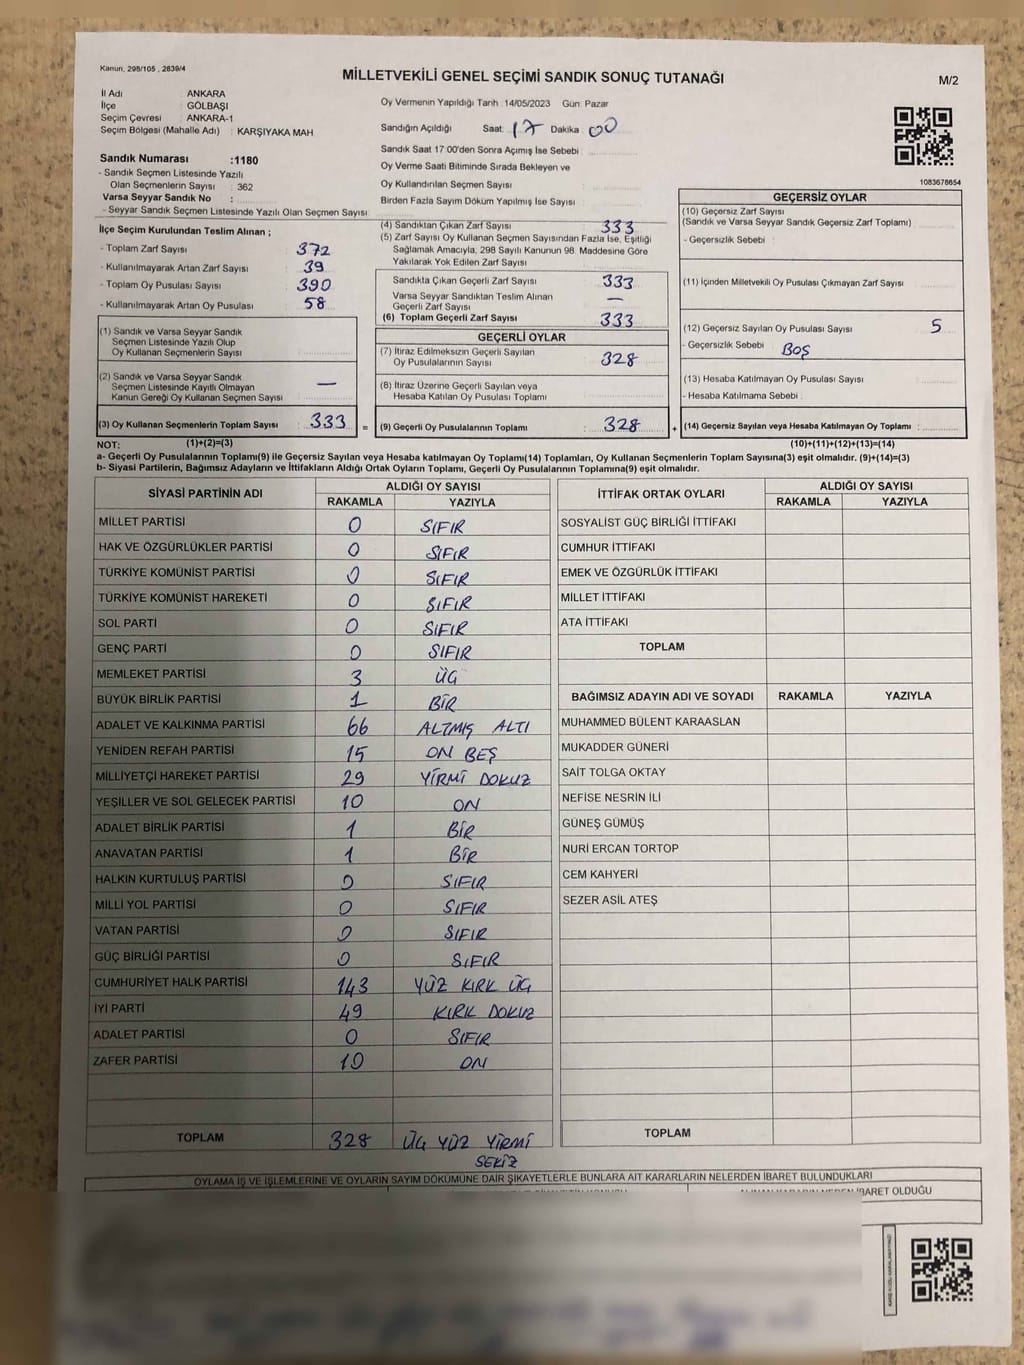 Kanun, 298/105 , 2839/4
MİLLETVEKİLİ GENEL SEÇİMİ SANDIK SONUÇ TUTANAĞI
M/2
İl Adı ANKARA
İlçe : GÖLBAŞI
Seçim Çevresi : ANKARA-1
Seçim Bölgesi (Mahalle Adı) : KARŞIYAKA MAH
Sandık Numarası :1180
- Sandık Seçmen Listesinde Yazılı
Olan Seçmenlerin Sayısı : 362
Varsa Seyyar Sandık No :
- Seyyar Sandık Seçmen Listesinde Yazılı Olan Seçmen Sayısı
İlçe Seçim Kurulundan Teslim Alınan ;
- Toplam Zarf Sayısı : 372
- Kullanılmayarak Artan Zarf Sayısı 39
- Toplam Oy Pusulası Sayısı : 390
- Kullanılmayarak Artan Oy Pusulası : 58
(1) Sandık ve Varsa Seyyar Sandık
Seçmen Listesinde Yazılı Olup
Oy Kullanan Seçmenlerin Sayısı :
(2) Sandık ve Varsa Seyyar Sandık
Seçmen Listesinde Kayıtlı Olmayan
Kanun Gereği Oy Kullanan Seçmen Sayısı : —
(3) Oy Kullanan Seçmenlerin Toplam Sayısı : 333 =
Oy Vermenin Yapıldığı Tarih :14/05/2023 Gün: Pazar
Sandığın Açıldığı Saat: 17 Dakika: 00
Sandık Saat 17:00'den Sonra Açımış İse Sebebi :
Oy Verme Saati Bitiminde Sırada Bekleyen ve
Oy Kullandırılan Seçmen Sayısı
Birden Fazla Sayım Döküm Yapılmış İse Sayısı
(4) Sandıktan Çıkan Zarf Sayısı : 333
(5) Zarf Sayısı Oy Kullanan Seçmen Sayısından Fazla İse, Eşitliği
Sağlamak Amacıyla, 298 Sayılı Kanunun 98. Maddesine Göre
Yakılarak Yok Edilen Zarf Sayısı :
Sandıkta Çıkan Geçerli Zarf Sayısı : 333
Varsa Seyyar Sandıktan Teslim Alınan
Geçerli Zarf Sayısı : —
(6) Toplam Geçerli Zarf Sayısı : 333
GEÇERLİ OYLAR
(7) İtiraz Edilmeksizin Geçerli Sayılan
Oy Pusulalarının Sayısı : 328
(8) İtiraz Üzerine Geçerli Sayılan veya
Hesaba Katılan Oy Pusulası Toplamı :
(9) Geçerli Oy Pusulalarının Toplamı : 328 +
1083678654
GEÇERSİZ OYLAR
(10) Geçersiz Zarf Sayısı
(Sandık ve Varsa Seyyar Sandık Geçersiz Zarf Toplamı) :
- Geçersizlik Sebebi :
(11) İçinden Milletvekili Oy Pusulası Çıkmayan Zarf Sayısı :
(12) Geçersiz Sayılan Oy Pusulası Sayısı : 5
- Geçersizlik Sebebi : BOŞ
(13) Hesaba Katılmayan Oy Pusulası Sayısı :
- Hesaba Katılmama Sebebi :
(14) Geçersiz Sayılan veya Hesaba Katılmayan Oy Toplamı :
NOT: (1)+(2)=(3) (10)+(11)+(12)+(13)=(14)
a- Geçerli Oy Pusulalarının Toplamı(9) ile Geçersiz Sayılan veya Hesaba katılmayan Oy Toplamı(14) Toplamları, Oy Kullanan Seçmenlerin Toplam Sayısına(3) eşit olmalıdır. (9)+(14)=(3)
b- Siyasi Partilerin, Bağımsız Adayların ve İttifakların Aldığı Ortak Oyların Toplamı, Geçerli Oy Pusulalarının Toplamına(9) eşit olmalıdır.
SİYASİ PARTİNİN ADI ALDIĞI OY SAYISI
RAKAMLA YAZIYLA
MİLLET PARTİSİ 0 SIFIR
HAK VE ÖZGÜRLÜKLER PARTİSİ 0 SIFIR
TÜRKİYE KOMÜNİST PARTİSİ 0 SIFIR
TÜRKİYE KOMÜNİST HAREKETİ 0 SIFIR
SOL PARTİ 0 SIFIR
GENÇ PARTİ 0 SIFIR
MEMLEKET PARTİSİ 3 ÜÇ
BÜYÜK BİRLİK PARTİSİ 1 BİR
ADALET VE KALKINMA PARTİSİ 66 ALTMIŞ ALTI
YENİDEN REFAH PARTİSİ 15 ON BEŞ
MİLLİYETÇİ HAREKET PARTİSİ 29 YİRMİ DOKUZ
YEŞİLLER VE SOL GELECEK PARTİSİ 10 ON
ADALET BİRLİK PARTİSİ 1 BİR
ANAVATAN PARTİSİ 1 BİR
HALKIN KURTULUŞ PARTİSİ 0 SIFIR
MİLLİ YOL PARTİSİ 0 SIFIR
VATAN PARTİSİ 0 SIFIR
GÜÇ BİRLİĞİ PARTİSİ 0 SIFIR
CUMHURİYET HALK PARTİSİ 143 YÜZ KIRK ÜÇ
İYİ PARTİ 49 KIRK DOKUZ
ADALET PARTİSİ 0 SIFIR
ZAFER PARTİSİ 10 ON
TOPLAM 328 ÜÇ YÜZ YİRMİ
SEKİZ
İTTİFAK ORTAK OYLARI ALDIĞI OY SAYISI
RAKAMLA YAZIYLA
SOSYALİST GÜÇ BİRLİĞİ İTTİFAKI
CUMHUR İTTİFAKI
EMEK VE ÖZGÜRLÜK İTTİFAKI
MİLLET İTTİFAKI
ATA İTTİFAKI
TOPLAM
BAĞIMSIZ ADAYIN ADI VE SOYADI RAKAMLA YAZIYLA
MUHAMMED BÜLENT KARAASLAN
MUKADDER GÜNERİ
SAİT TOLGA OKTAY
NEFİSE NESRİN İLİ
GÜNEŞ GÜMÜŞ
NURİ ERCAN TORTOP
CEM KAHYERİ
SEZER ASİL ATEŞ
TOPLAM
OYLAMA İŞ VE İŞLEMLERİNE VE OYLARIN SAYIM DÖKÜMÜNE DAİR ŞİKAYETLERLE BUNLARA AİT KARARLARIN NELERDEN İBARET BULUNDUKLARI
İBARET OLDUĞU